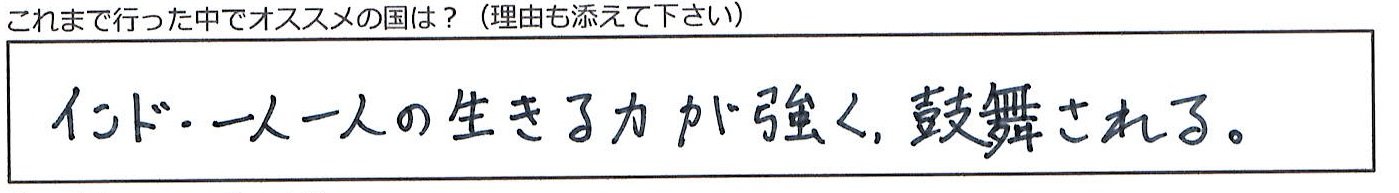 これまで行った中でオススメの国は？（理由も添えて下さい）
インド・一人一人の生きる力が強く，鼓舞される。